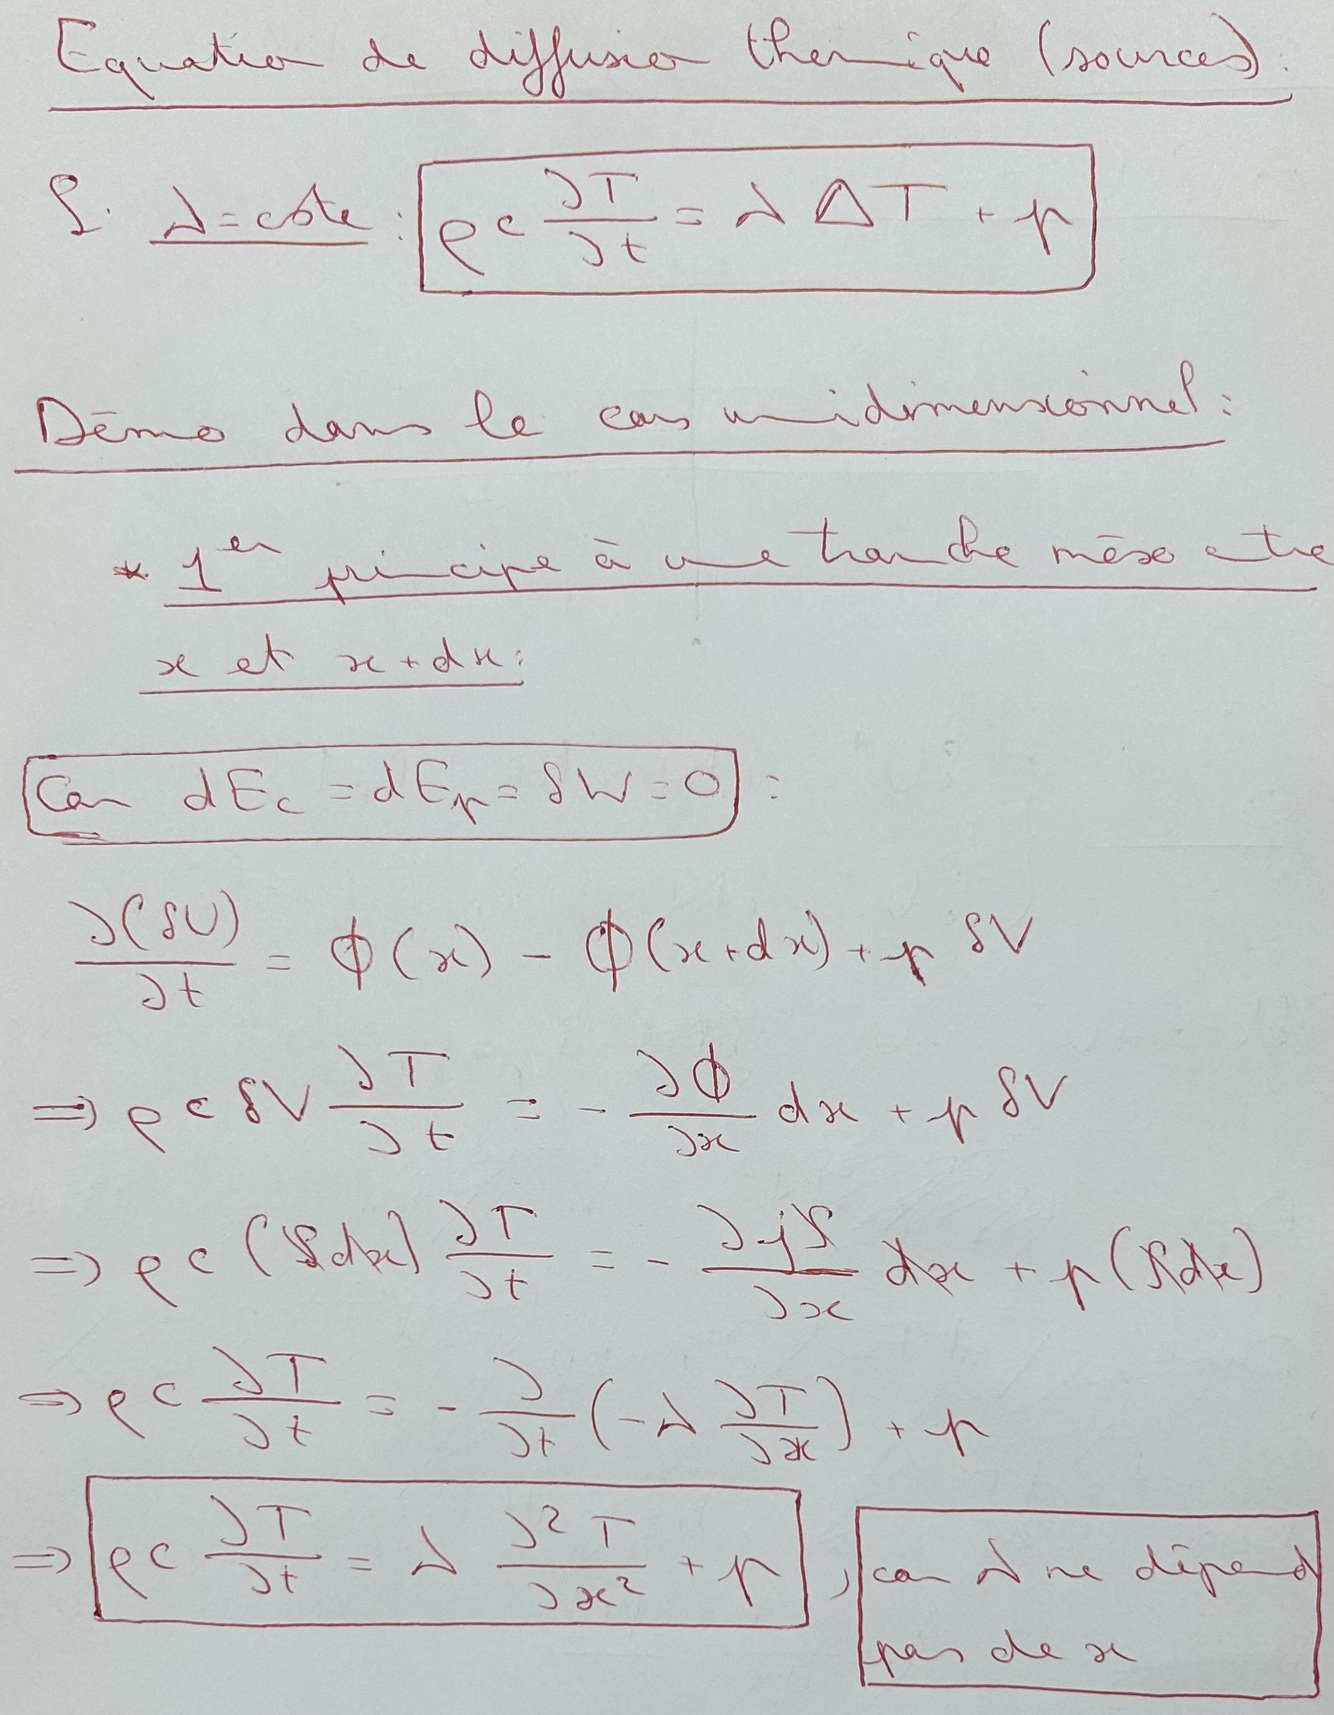 Equation de diffusion thermique (sources):
Si λ=cste : ρc ∂T/∂t = λ ΔT + p
Démo dans le cas unidimensionnel:
* 1er principe à une tranche méso entre
x et x+dx:
Car dEc = dEp = δW = 0 :
∂(δU)/∂t = ϕ(x) - ϕ(x+dx) + p δV
=> ρc δV ∂T/∂t = - ∂ϕ/∂x dx + p δV
=> ρc (Sdx) ∂T/∂t = - ∂jS/∂x dx + p(Sdx)
=> ρc ∂T/∂t = - ∂/∂t (-λ ∂T/∂x) + p
=> ρc ∂T/∂t = λ ∂²T/∂x² + p , car λ ne dépend
pas de x